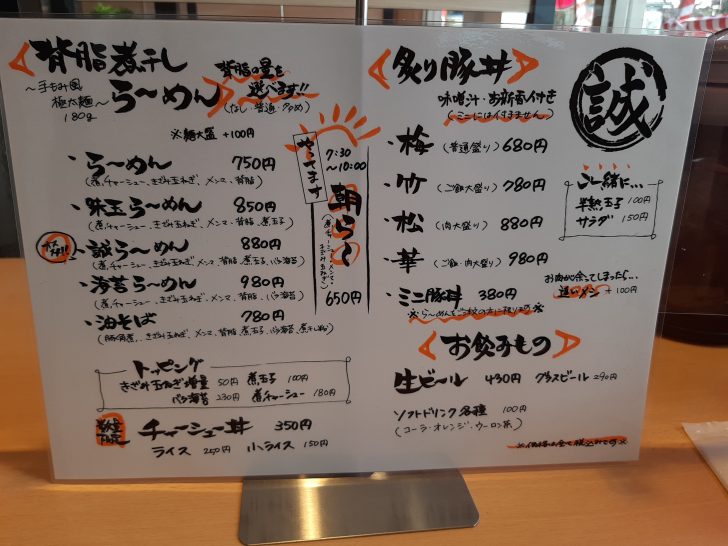 背脂煮干し
らーめん
～手もみ風
極太麺～
180g
背脂の量も
選べます!!
(なし・普通・多め)
※麺大盛 +100円
・らーめん 750円
(煮チャーシュー、きざみ玉ねぎ、メンマ、背脂)
・味玉らーめん 850円
(煮チャーシュー、きざみ玉ねぎ、メンマ、背脂、煮玉子)
・誠らーめん 880円
(煮チャーシュー、きざみ玉ねぎ、メンマ、背脂、煮玉子、バラ海苔)
・海苔らーめん 980円
(煮チャーシュー、きざみ玉ねぎ、メンマ、背脂、バラ海苔)
・油そば 780円
(豚角煮、きざみ玉ねぎ、メンマ、背脂、煮玉子、バラ海苔、煮干し粉)
やってます
7:30
～10:00
朝らー
(煮チャーシュー、メンマ、きざみ玉ねぎ)
650円
トッピング
きざみ玉ねぎ増量 50円 煮玉子 100円
バラ海苔 230円 煮チャーシュー 180円
数量
限定
チャーシュー丼 350円
ライス 250円 小ライス 150円
炙り豚丼
味噌汁・お新香付き
(ミニには付きません)
誠
・梅 (普通盛り) 680円
・竹 (ご飯大盛り) 780円
・松 (肉大盛り) 880円
・華 (ご飯・肉大盛り) 980円
・ミニ豚丼 380円
ご一緒に…
半熟玉子 100円
サラダ 150円
お肉が余してしまったら…
追いメシ +100円
お飲みもの
生ビール 430円 グラスビール 290円
ソフトドリンク各種 100円
(コーラ・オレンジ・ウーロン茶)
※価格は全て税込みです※